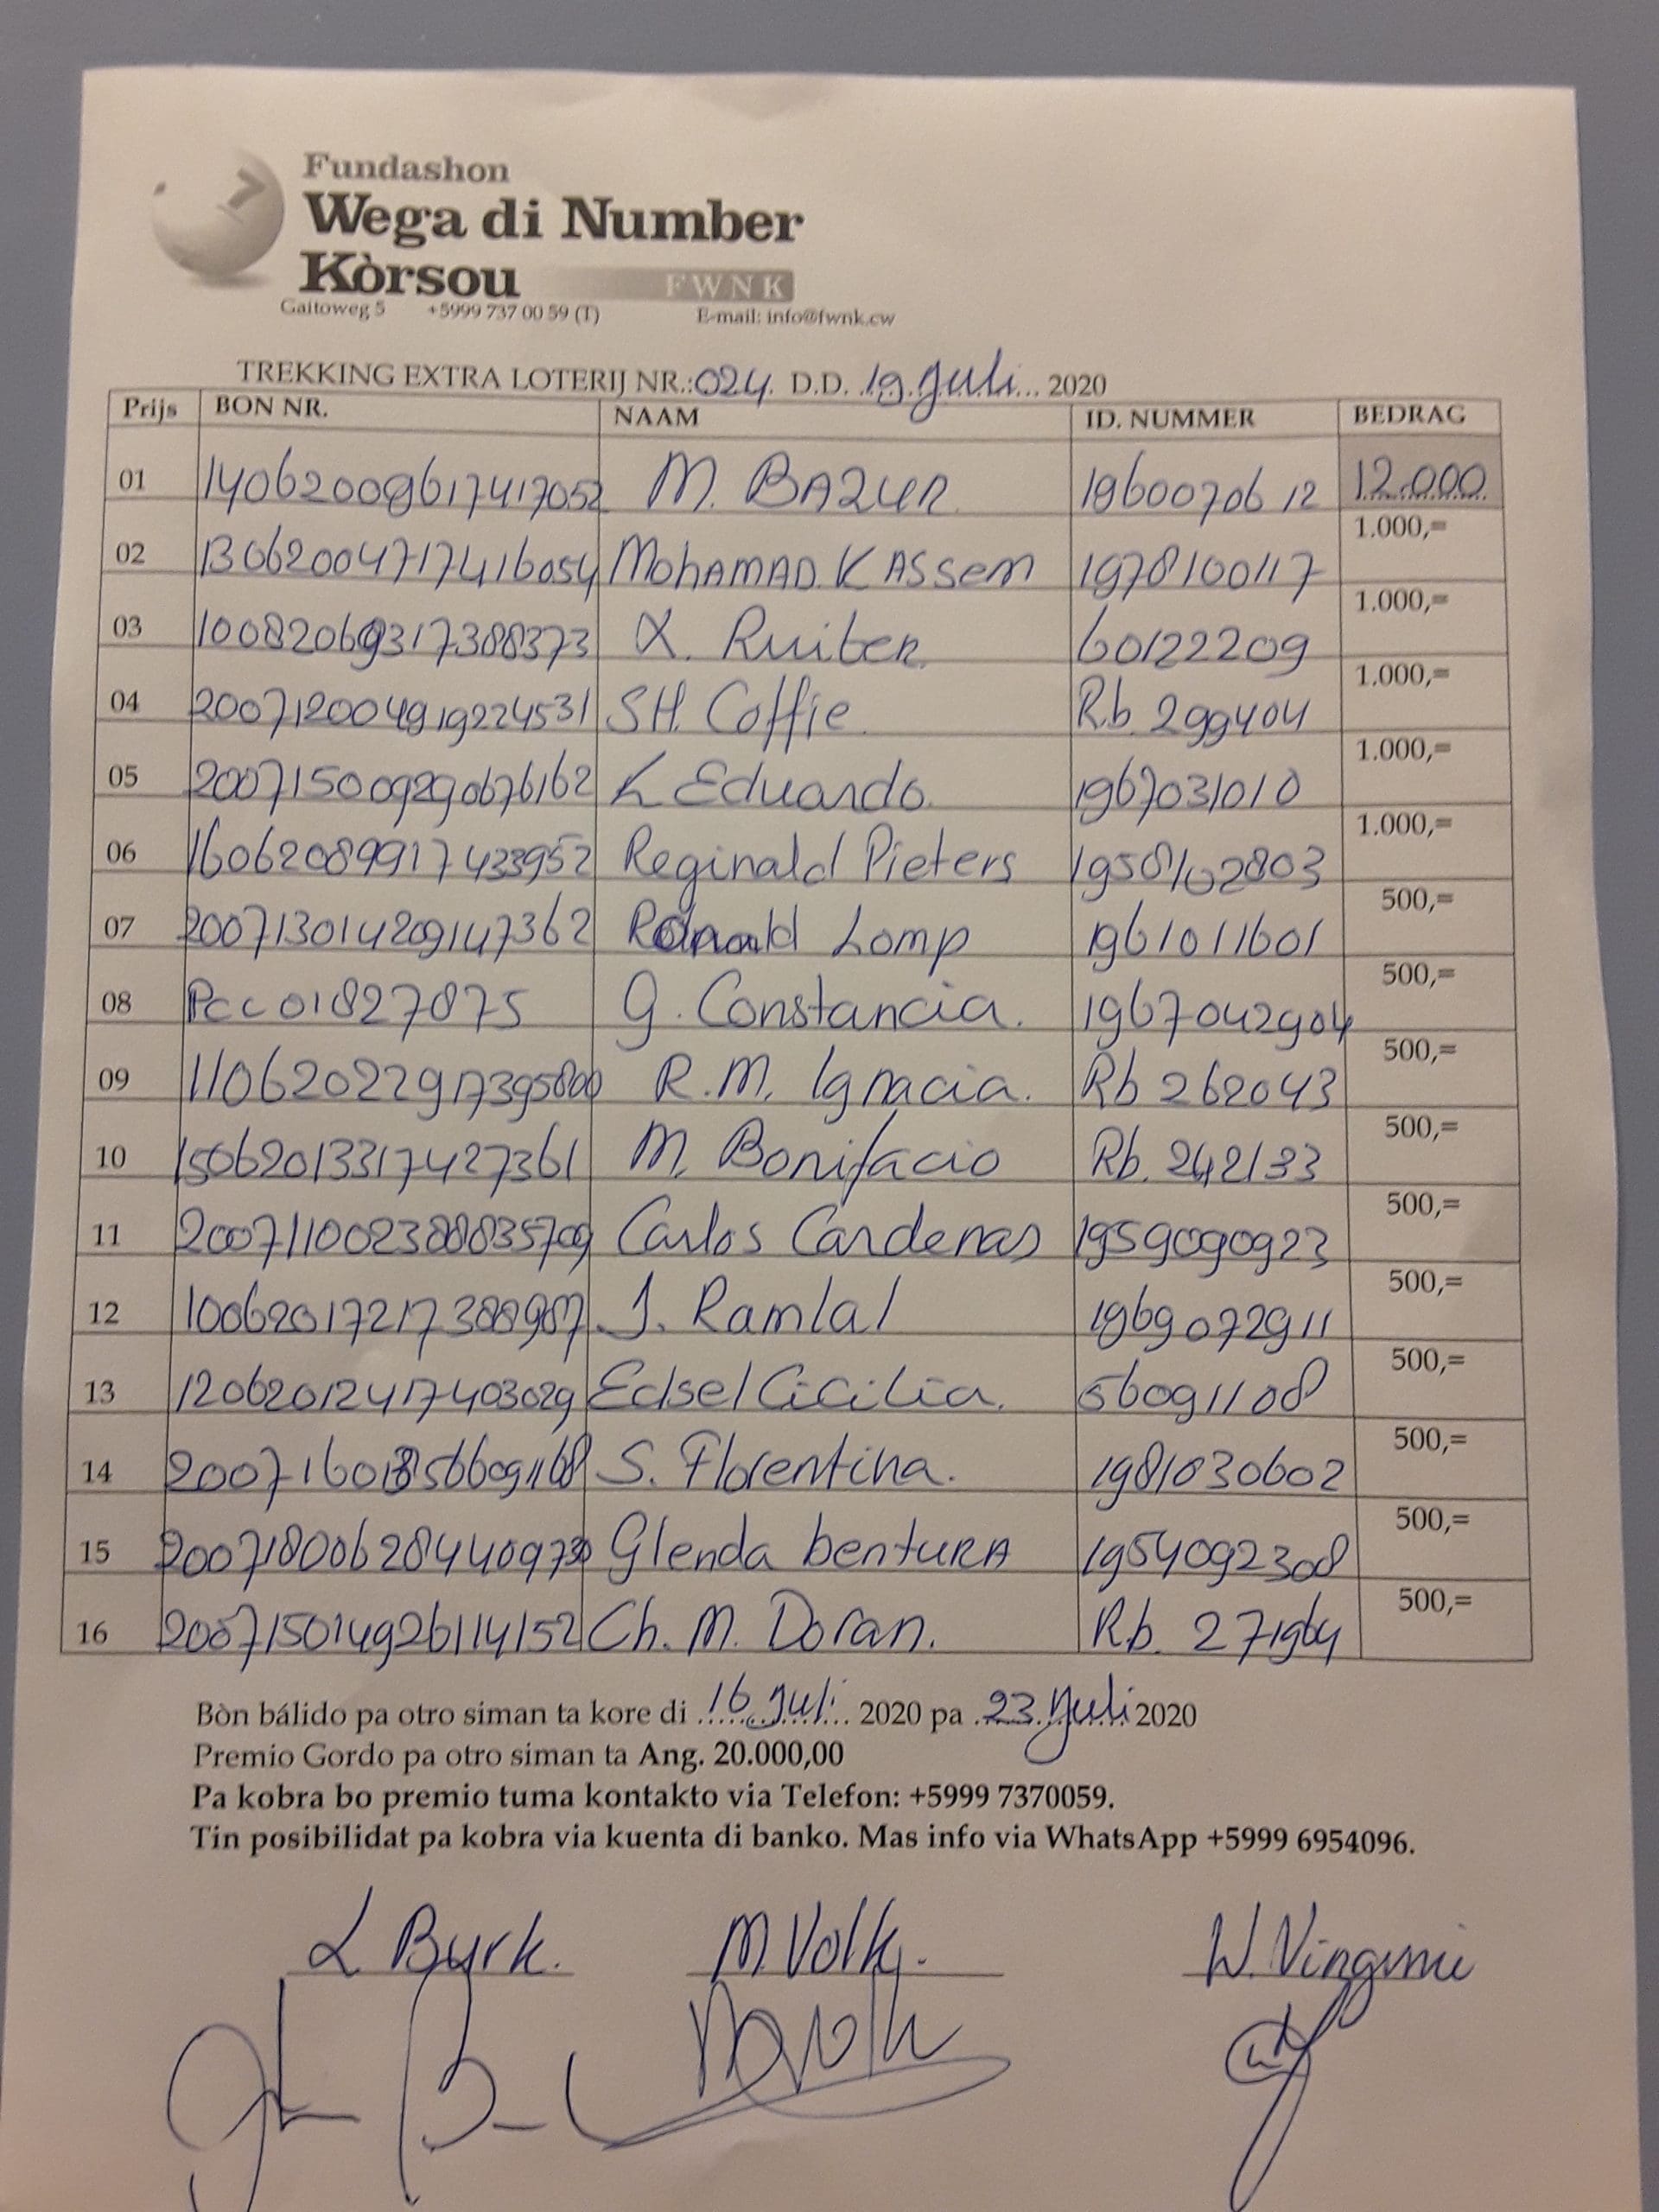 Fundashon
Wega di Number
Kòrsou
FWNK
Gaitoweg 5 +5999 737 00 59 (T) E-mail: info@fwnk.cw
TREKKING EXTRA LOTERIJ NR.: 024. D.D. 19 Juli 2020
Prijs BON NR. NAAM ID. NUMMER BEDRAG
01 M. BAZUR 1960070612 12.000
02 13062004717416054 MohAMAD. KASSem 1978100117 1.000,=
03 Ruiter. 60122209 1.000,=
04 20071200491922 4531 SH. Coffie. Rb 299404 1.000,=
05 200715009290676162 Eduardo. 1967031010 1.000,=
06 16062089917433952 Reginald Pieters 1958102803 1.000,=
07 200713014209147362 Ronald Lomp 1961011601 500,=
08 Pcc01827875 G. Constancia. 1967042904 500,=
09 R.M. Ignacia. Rb 262043 500,=
10 150620133174 27361 M. Bonifacio Rb. 242133 500,=
11 200711002388835709 Carlos Cardenas 1959090923 500,=
12 J. Ramlal 1969072911 500,=
13 120620124174 03029 Edsel Cicilia. 56091108 500,=
14 S. Florentina. 1981030602 500,=
15 Glenda bentura 1954092308 500,=
16 200715014926114152 Ch. M. Doran. Rb. 271964 500,=
Bòn bálido pa otro siman ta kore di 16 Juli 2020 pa 23 Juli 2020
Premio Gordo pa otro siman ta Ang. 20.000,00
Pa kobra bo premio tuma kontakto via Telefon: +5999 7370059.
Tin posibilidat pa kobra via kuenta di banko. Mas info via WhatsApp +5999 6954096.
L Byrk. M. Volk W. Virginie